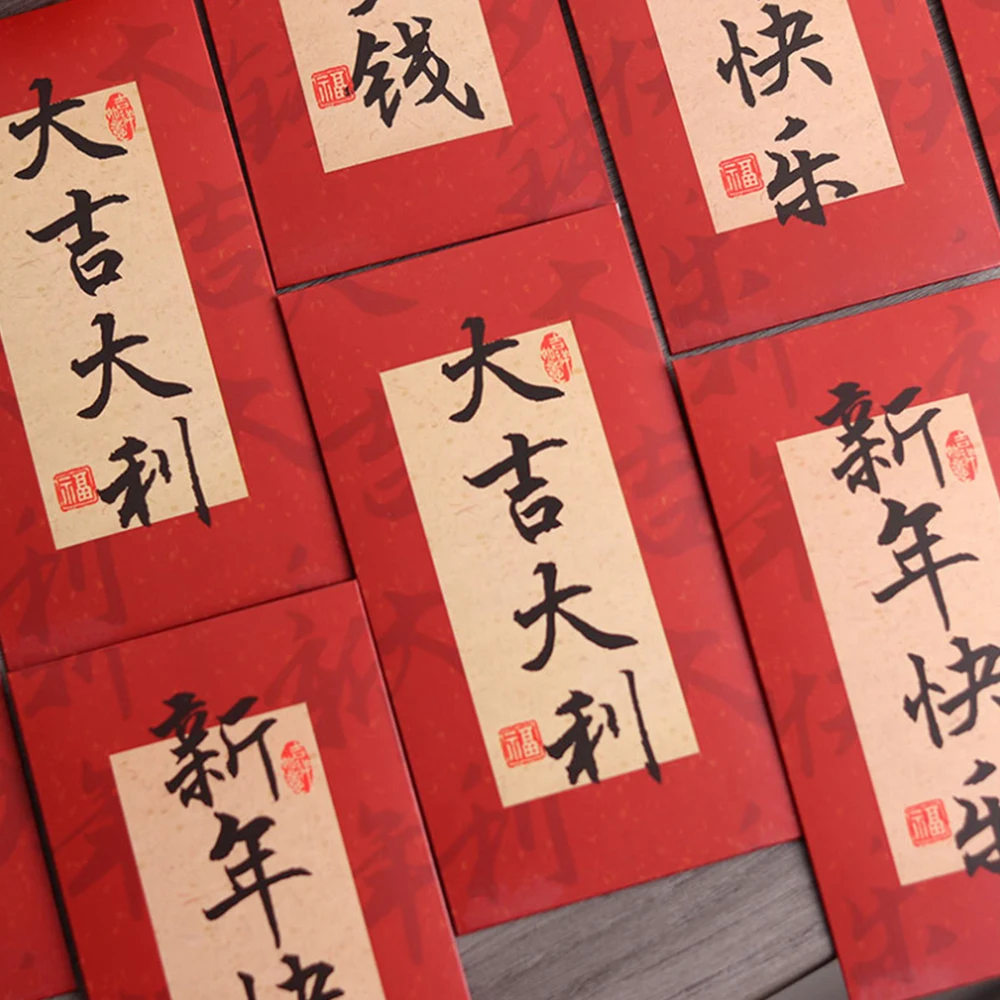 大吉大利
福
钱
福
快乐
福
大吉大利
福
新年快乐
福
新年快